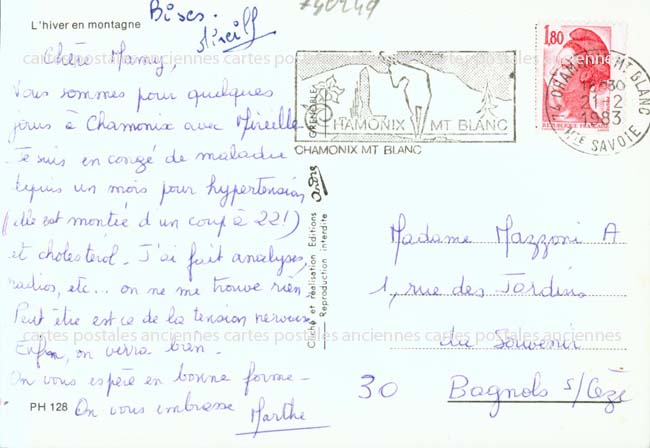 L'hiver en montagne
Bises.
Mireille
740249
Chère Mamy,
Nous sommes pour quelques
jours à Chamonix avec Mireille
Je suis en congé de maladie
depuis un mois pour hypertension
(elle est montée d'un coup à 22!)
et cholestérol. J'ai fait analyses,
radios, etc... on ne me trouve rien.
Peut être est ce de la tension nerveuse
Enfin, on verra bien.
On vous espère en bonne forme -
On vous embrasse
Marthe
PH 128
Cliché et réalisation Editions André
Reproduction interdite
GRENOBLE
CHAMONIX MT BLANC
CHAMONIX MT BLANC
1,80
REPUBLIQUE FRANÇAISE
74 CHAMONIX MT BLANC
2-2
1983
Hte SAVOIE
Madame Mazzoni A
1, rue des Jardins
du Souvenir
30 Bagnols s/Cèze
cartes postales anciennes cartes postales anciennes cartes postales anciennes
cartes postales anciennes cartes postales anciennes cartes postales anciennes